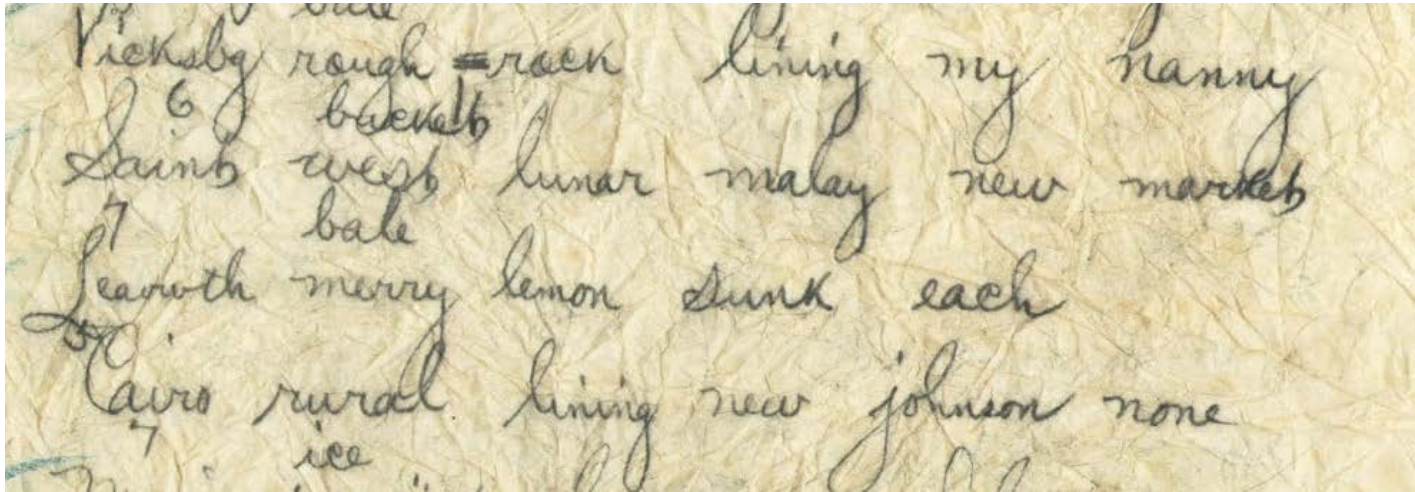 bale
Vicksbg rough rock lining my nanny
6 bucket
Saint west lunar malay new market
7 bale
Leavwth merry lemon sunk each
5
Cairo rural lining new johnson none
7 ice